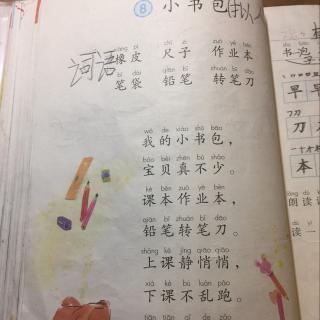 8 小书包
xiàng pí chǐ zi zuò yè běn
词语 橡皮 尺子 作业本
bǐ dài qiān bǐ zhuàn bǐ dāo
笔袋 铅笔 转笔刀
wǒ de xiǎo shū bāo
我的小书包,
bǎo bèi zhēn bù shǎo
宝贝真不少。
kè běn zuò yè běn
课本作业本,
qiān bǐ zhuàn bǐ dāo
铅笔转笔刀。
shàng kè jìng qiāo qiāo
上课静悄悄,
xià kè bú luàn pǎo
下课不乱跑。
tiān tiān qǐ de zǎo
早早
刀
本
朗读
读一